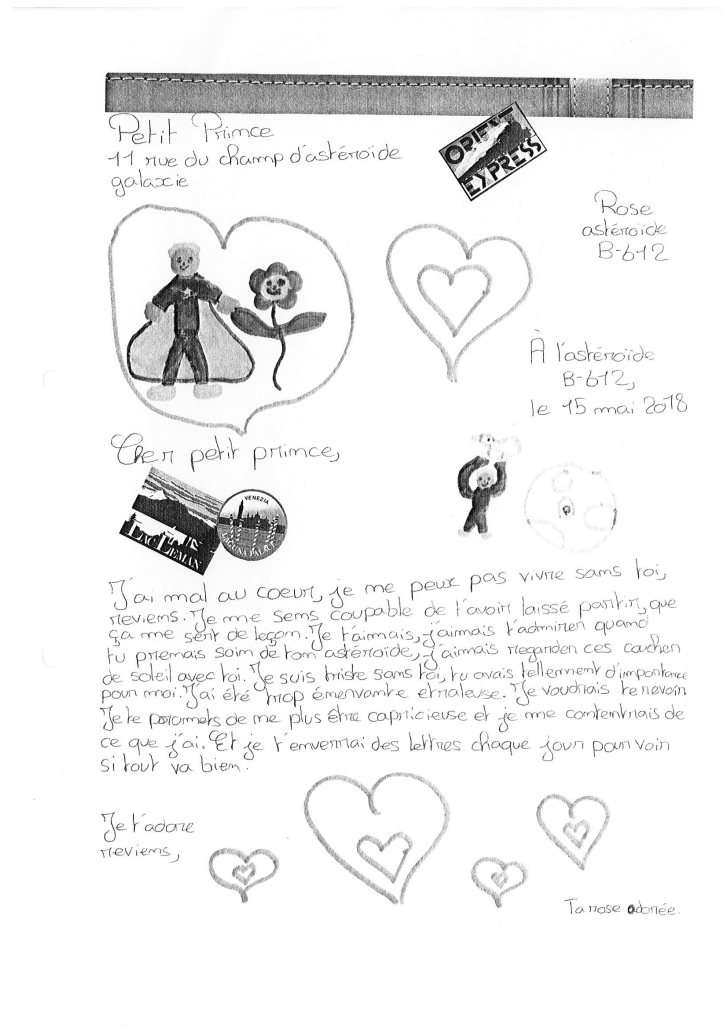 Petit Prince
11 rue du champ d'astéroïde
galaxie
ORIENT
EXPRESS
Rose
astéroïde
B-612
À l'astéroïde
B-612,
le 15 mai 2018
Cher petit prince,
LAC LEMAN
VENEZIA
LAGUNA PALACE
J'ai mal au coeur, je me peux pas vivre sans toi,
reviens. Je me sens coupable de t'avoir laissé partir, que
ça me sert de leçon. Je t'aimais, j'aimais t'admirer quand
tu prenais soin de ton astéroïde, j'aimais regarder ces coucher
de soleil avec toi. Je suis triste sans toi, tu avais tellement d'importance
pour moi. J'ai été trop énervante et raleuse. Je voudrais te revoir
Je te promets de me plus être capricieuse et je me contentrais de
ce que j'ai. Et je t'enverrai des lettres chaque jour pour voir
si tout va bien.
Je t'adore
reviens,
Ta rose adorée.